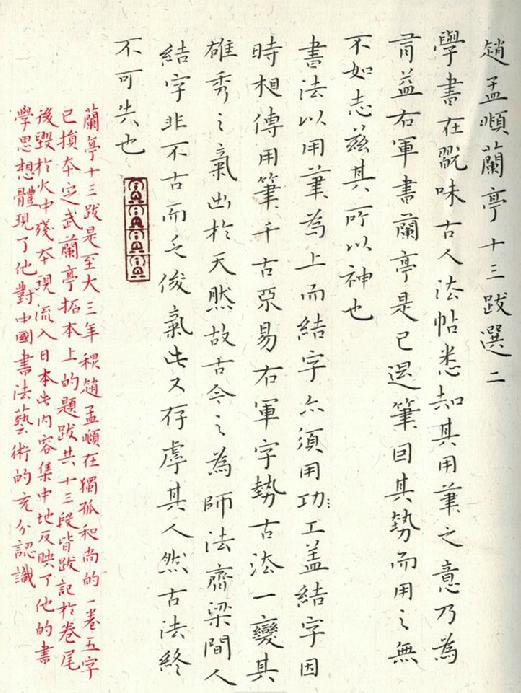 趙孟頫蘭亭十三跋選二
學書在翫味古人法帖悉知其用筆之意乃為
有益右軍書蘭亭是已退筆因其勢而用之無
不如志茲其所以神也
書法以用筆為上而結字亦須用功工盖結字因
時相傳用筆千古不易右軍字勢古法一變其
雄秀之氣出於天然故古今之為師法齊梁間人
結字非不古而乏俊氣此又存虖其人然古法終
不可失也
蘭亭十三跋是至大三年秋趙孟頫在獨孤和尚的一卷五字
已損本定武蘭亭拓本上的題跋共十三段皆跋記於卷尾
後毀於火中殘本現流入日本此内容集中地反映了他的書
學思想體現了他對中國書法藝術的充分認識